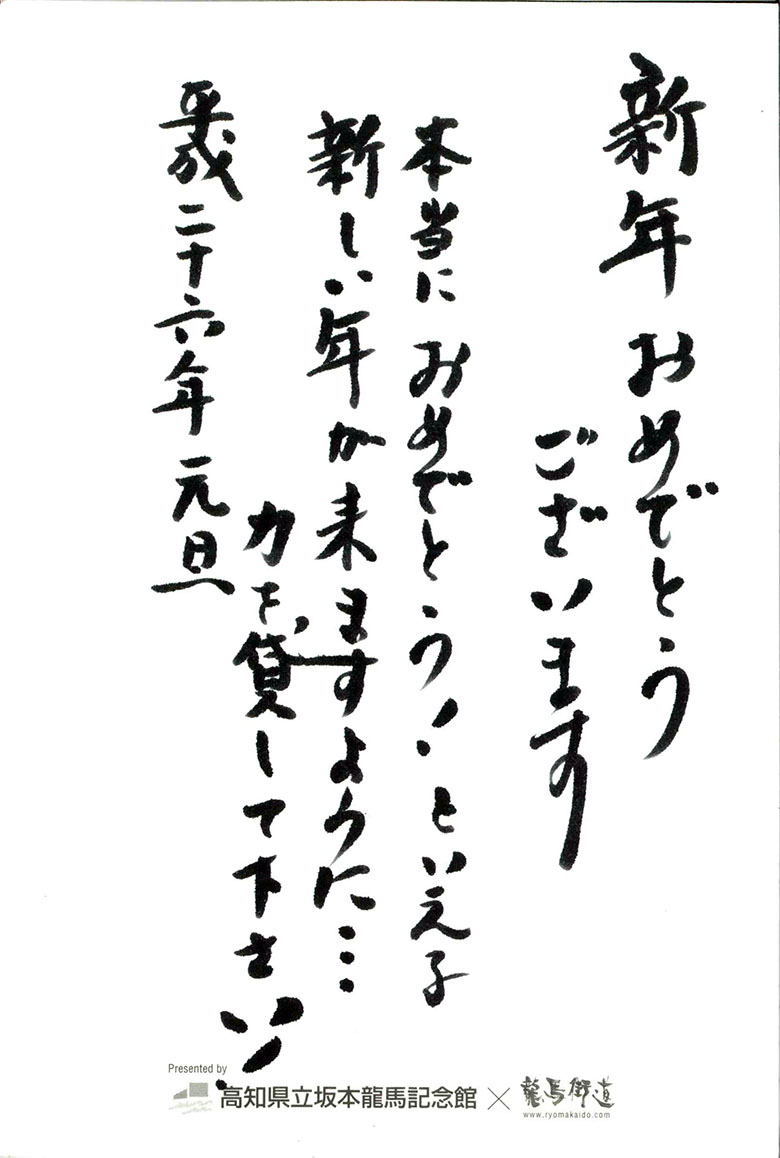 新年おめでとう
ございます
本当におめでとう！といえ子
新しい年が来ますように…
力を貸して下さい！
平成二十六年元旦
Presented by
高知県立坂本龍馬記念館×龍馬街道
www.ryomakaido.com